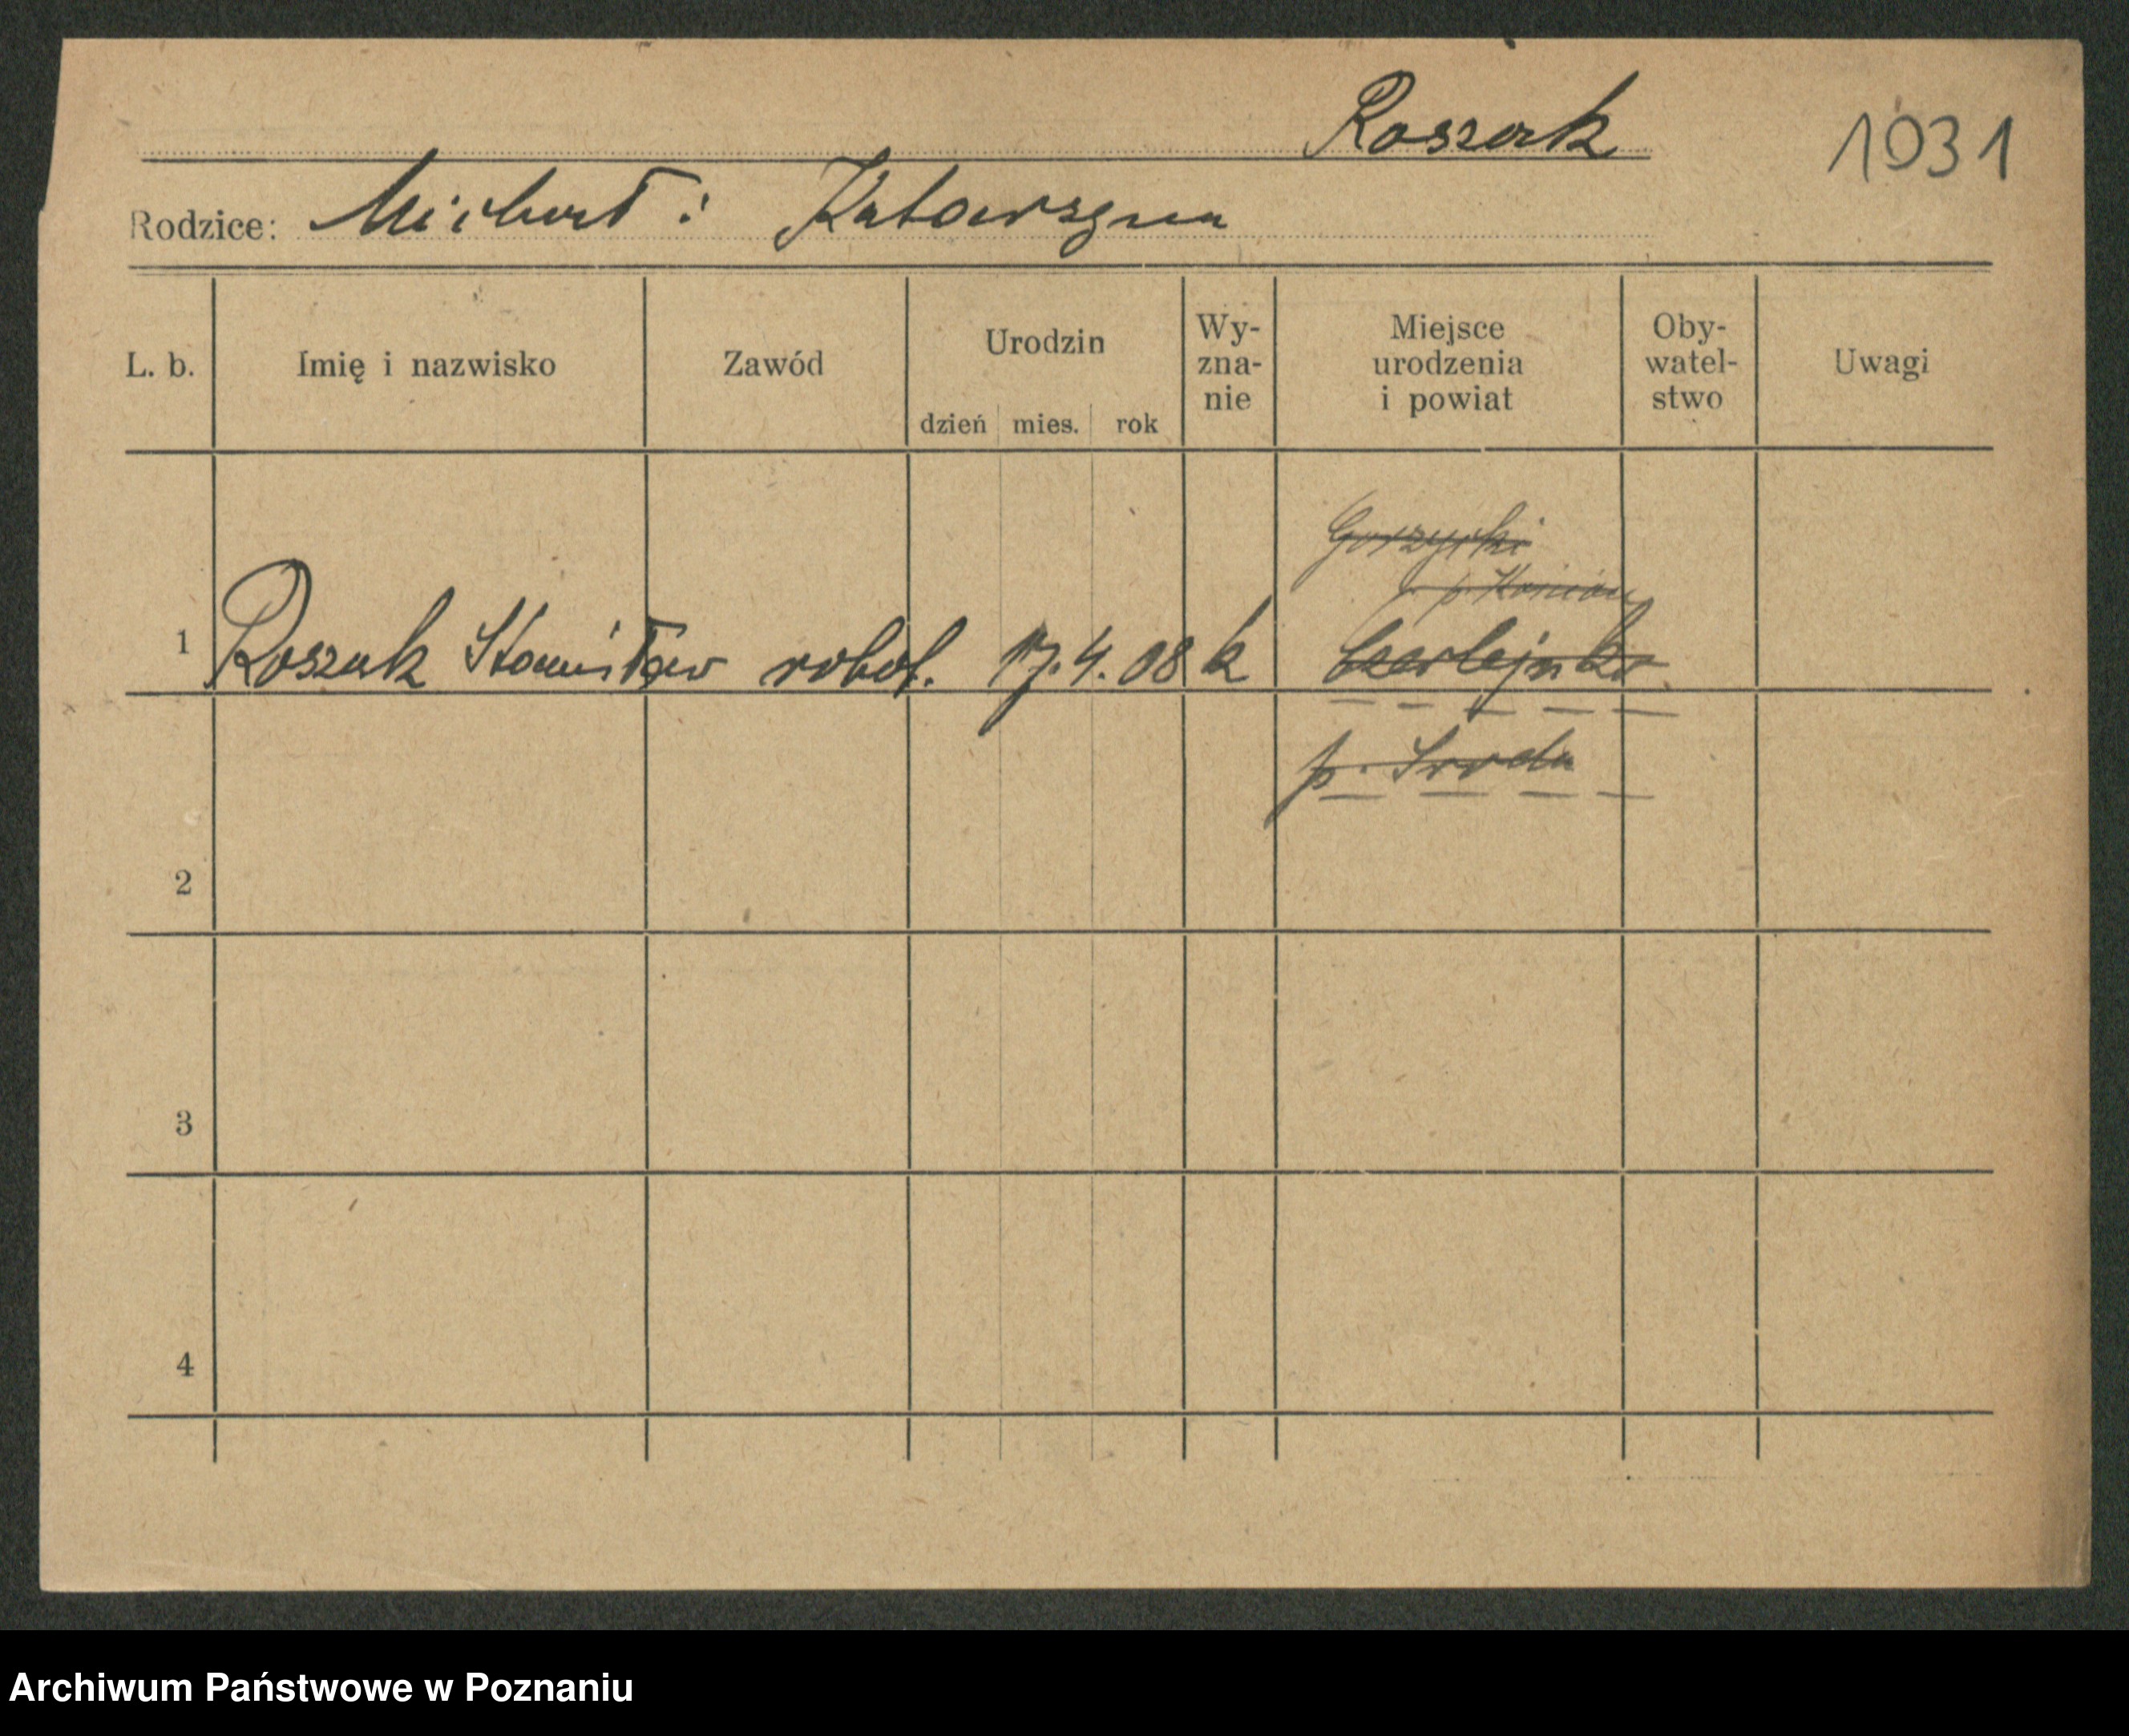 Roszak 1031
Rodzice: Michał i Katarzyna
L. b. Imię i nazwisko Zawód Urodzin dzień mies. rok Wy-zna-nie Miejsce urodzenia i powiat Oby-watel-stwo Uwagi
Gorzyczki
p. Kościan
1 Roszak Stanisław robot. 17. 4. 08 k Czerlejnko
p. Sroda
2
3
4
Archiwum Państwowe w Poznaniu